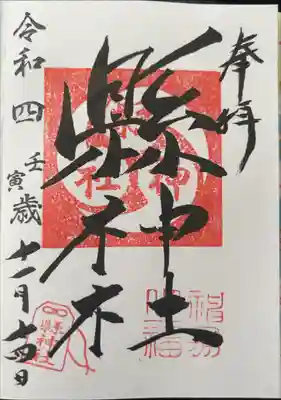 奉拝
縣神社
令和四壬寅歳十一月十四日
縣神社